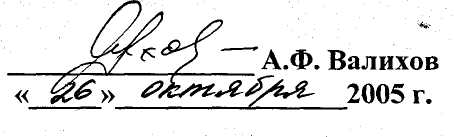 А.Ф. Валихов
«26» октября 2005 г.